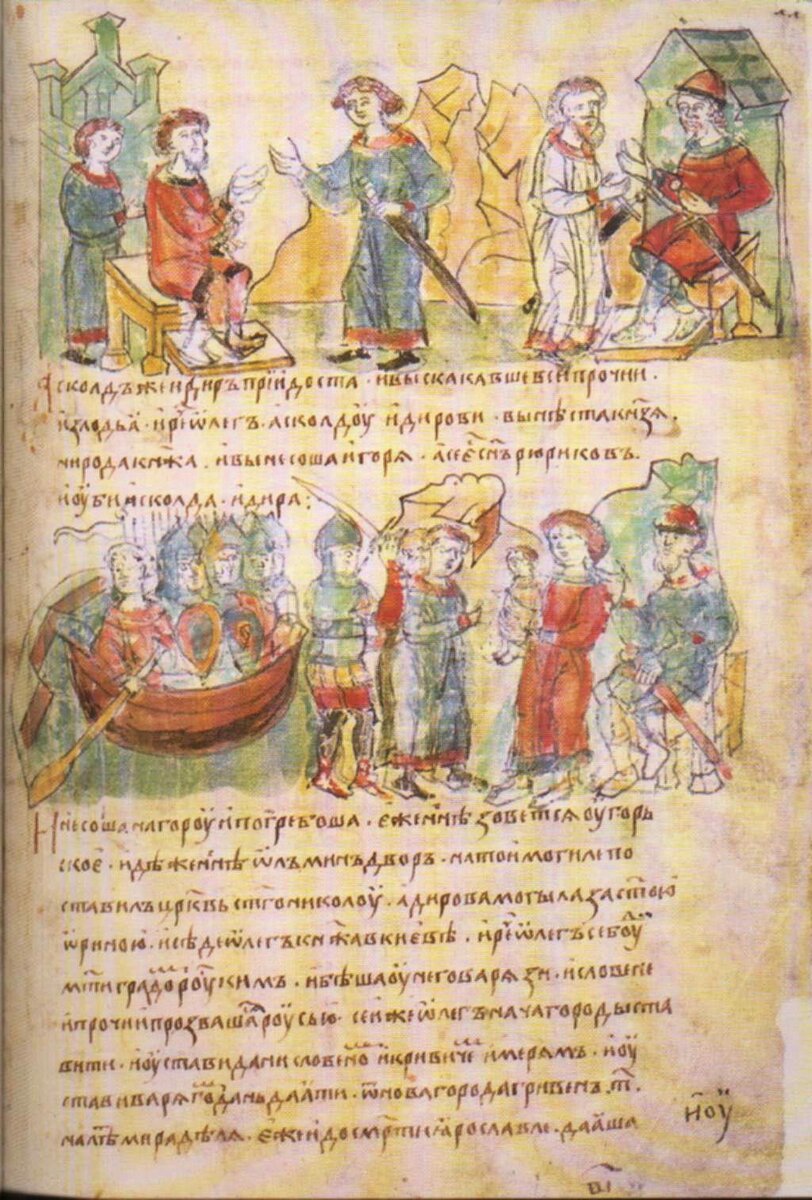 Асколдъ же и диръ прїидоста · и выскакавше вси прочии ·
изъ лодьѧ · и рє҃ ѡлегъ · асколдоу и дирови · вы нѣста кнѧзѧ ·
ни рода кнѧжа · и вынесоша игорѧ · а се єс҃ сн҃ъ рюриковъ ·
и оубиша асколда · и дира :
И несоша на гороу и погребоша · еже н҃нѣ зоветсѧ оугорь
скоє · идѣже н҃нѣ ѡлъминъ дворъ · на тои могиле по
ставилъ црк҃вь ст҃го николоу · а дирова могыла за ст҃ою
ѡриною · и сѣде ѡлегъ кнѧжа в киевѣ · и рє҃ ѡлегъ се боуд҃
мт҃и градом҃ роускимъ · и бѣша оу него варѧзи · и словене
и прочии прозвашас҃ роусью · сеи же ѡлегъ нача городы ста
вити · и оустави дани словеном҃ и кривичем҃ и мерѧмъ · и оу
стави варѧгом҃ дань даѧти · ѿ новагорода гривенъ · т҃ ·
на лѣт҃ мира дѣлѧ · еже и до смр҃ти ѩрославле · даѧша
и оу